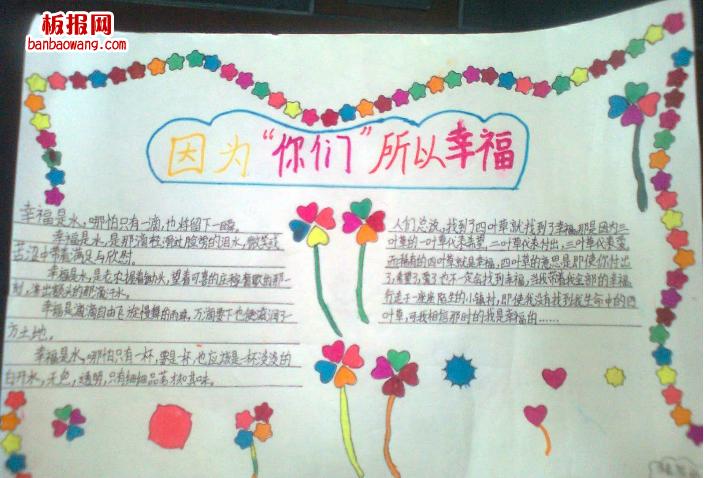 板报网
banbaowang.com
因为“你们”所以幸福
幸福是水，哪怕只有一滴，也将留下一瞬。
幸福是水，是那滴轻滑过脸颊的泪水，微笑或
苦涩中带着满足与欣慰。
幸福是水，是老农握着锄头，望着可喜的庄稼着歌的那一
刻，渗出额头的那滴汗水。
幸福是滴滴自由飞旋慢舞的雨珠，万滴落下也便滋润了一
方土地。
幸福是水，哪怕只有一杯，要是一杯，也应该是一杯淡淡的
白开水，无色，透明，只有细细品茗才知其味。
人们总说，找到了四叶草就找到了幸福，那是因为三
叶草的一叶草代表希望，二叶草代表付出，三叶草代表爱，
而稀有的四叶草就是幸福。四叶草的意思是即使你付出
了，希望了，爱了也不一定会找到幸福，当我带着我全部的幸福，
行走于一座座陌生的小镇村，即使我没有找到我生命中的四
叶草，可我相信那时的我是幸福的……